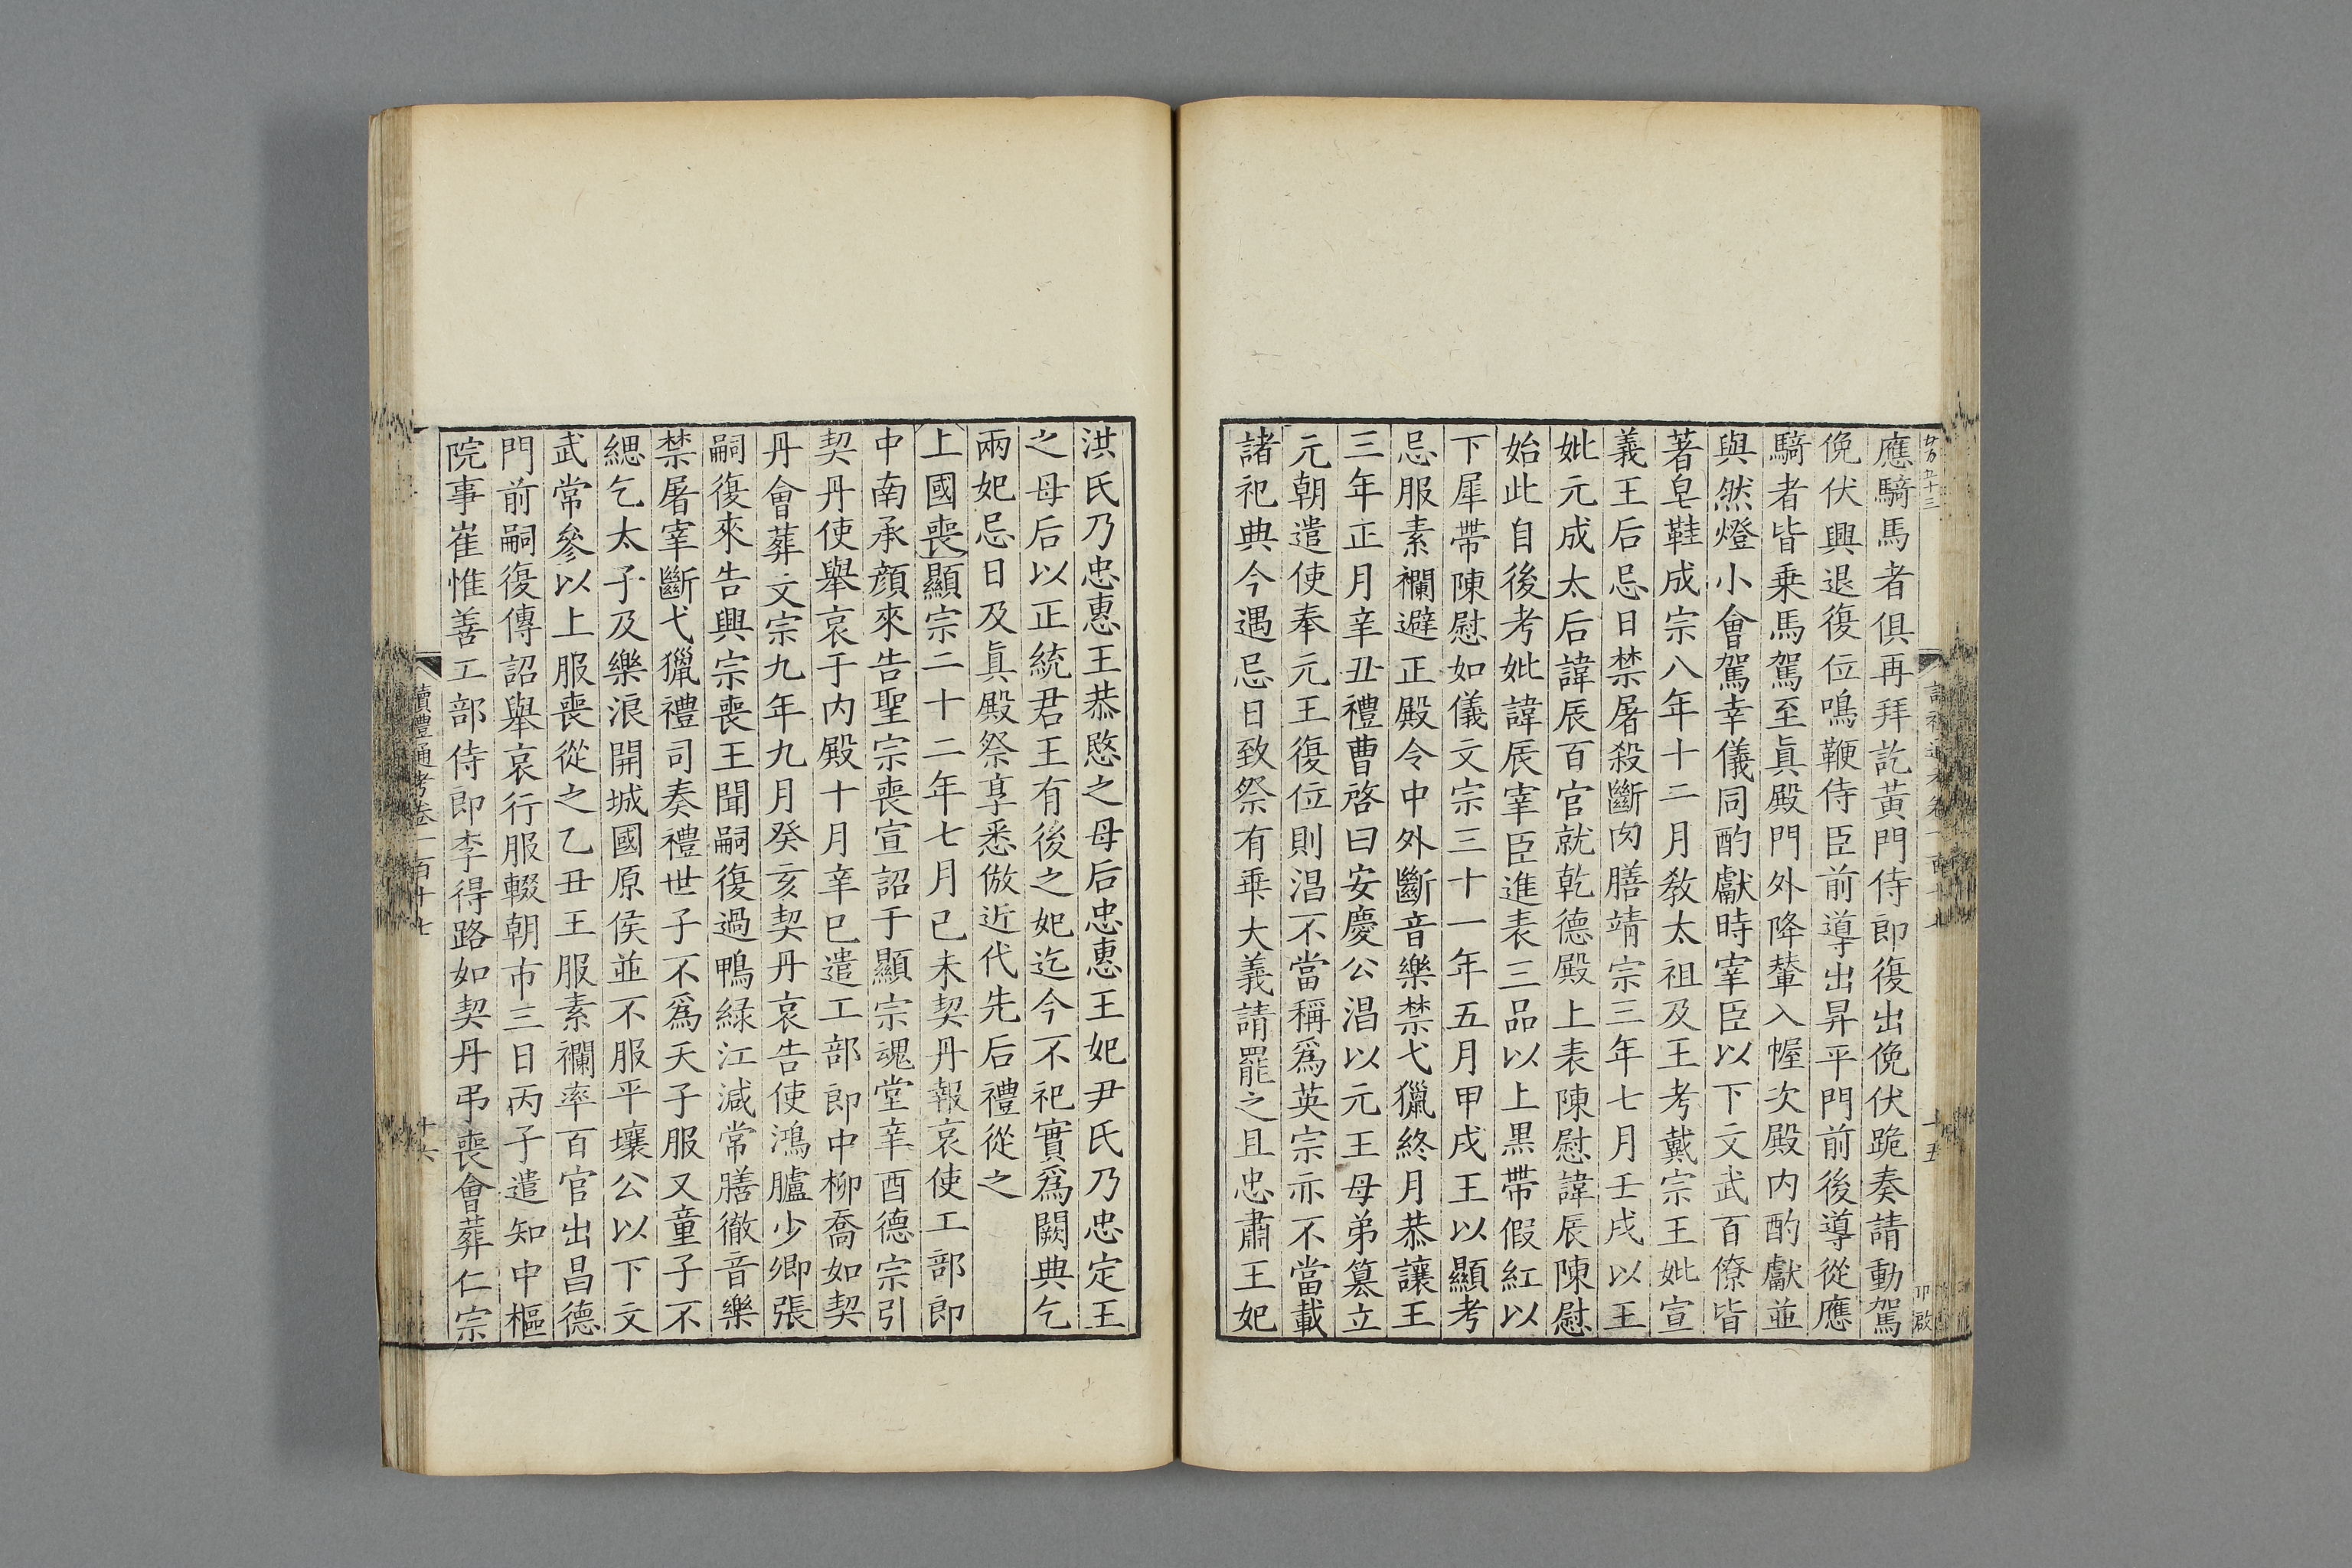 應騎馬者俱再拜訖黃門侍郎復出俛伏跪奏請動駕
俛伏興退復位鳴鞭侍臣前導出昇平門前後導從應
騎者皆乗馬駕至眞殿門外降輦入幄次殿內酌獻並
與然燈小會駕幸儀同酌獻時宰臣以下文武百僚皆
著皂鞋成宗八年十二月敎太祖及王考戴宗王妣宣
義王后忌日禁屠殺斷肉膳靖宗三年七月壬戌以王
妣元成太后諱辰百官就乾德殿上表陳慰諱辰陳慰
始此自後考妣諱辰宰臣進表三品以上黒帶假紅以
下犀帶陳慰如儀文宗三十一年五月甲戌王以顯考
忌服素襴避正殿令中外斷音樂禁弋獵終月恭讓王
三年正月辛丑禮曹啓曰安慶公淐以元王母弟簒立
元朝遣使奉元王復位則淐不當稱爲英宗亦不當載
諸祀典今遇忌日致祭有乖大義請罷之且忠肅王妃
洪氏乃忠惠王恭愍之母后忠惠王妃尹氏乃忠定王
之母后以正統君王有後之妃迄今不祀實爲闕典乞
兩妃忌日及眞殿祭享悉倣近代先后禮從之
上國喪顯宗二十二年七月己未契丹報哀使工部郎
中南承顔來告聖宗喪宣詔于顯宗魂堂辛酉德宗引
契丹使舉哀于內殿十月辛巳遣工部郎中柳喬如契
丹會葬文宗九年九月癸亥契丹哀告使鴻臚少卿張
嗣復來告興宗喪王聞嗣復過鴨緑江減常膳徹音樂
禁屠宰斷弋獵禮司奏禮世子不爲天子服又童子不
緦乞太子及樂浪開城國原侯並不服平壤公以下文
武常參以上服喪從之乙丑王服素襴率百官出昌德
門前嗣復傳詔舉哀行服輟朝市三日丙子遣知中樞
院事崔惟善工部侍郎李得路如契丹弔喪會葬仁宗
讀禮通考卷一百十七
十六